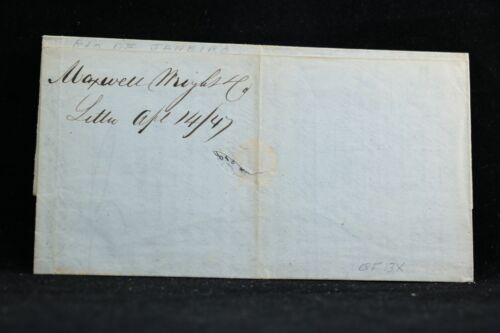 RIO DE JANEIRO
Maxwell Wright & Co
Letter Apl 14/47